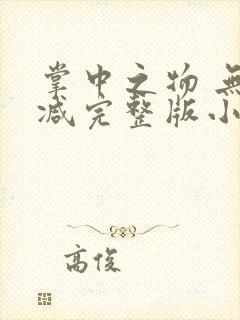 掌中之物 無
减完整版小
高俊